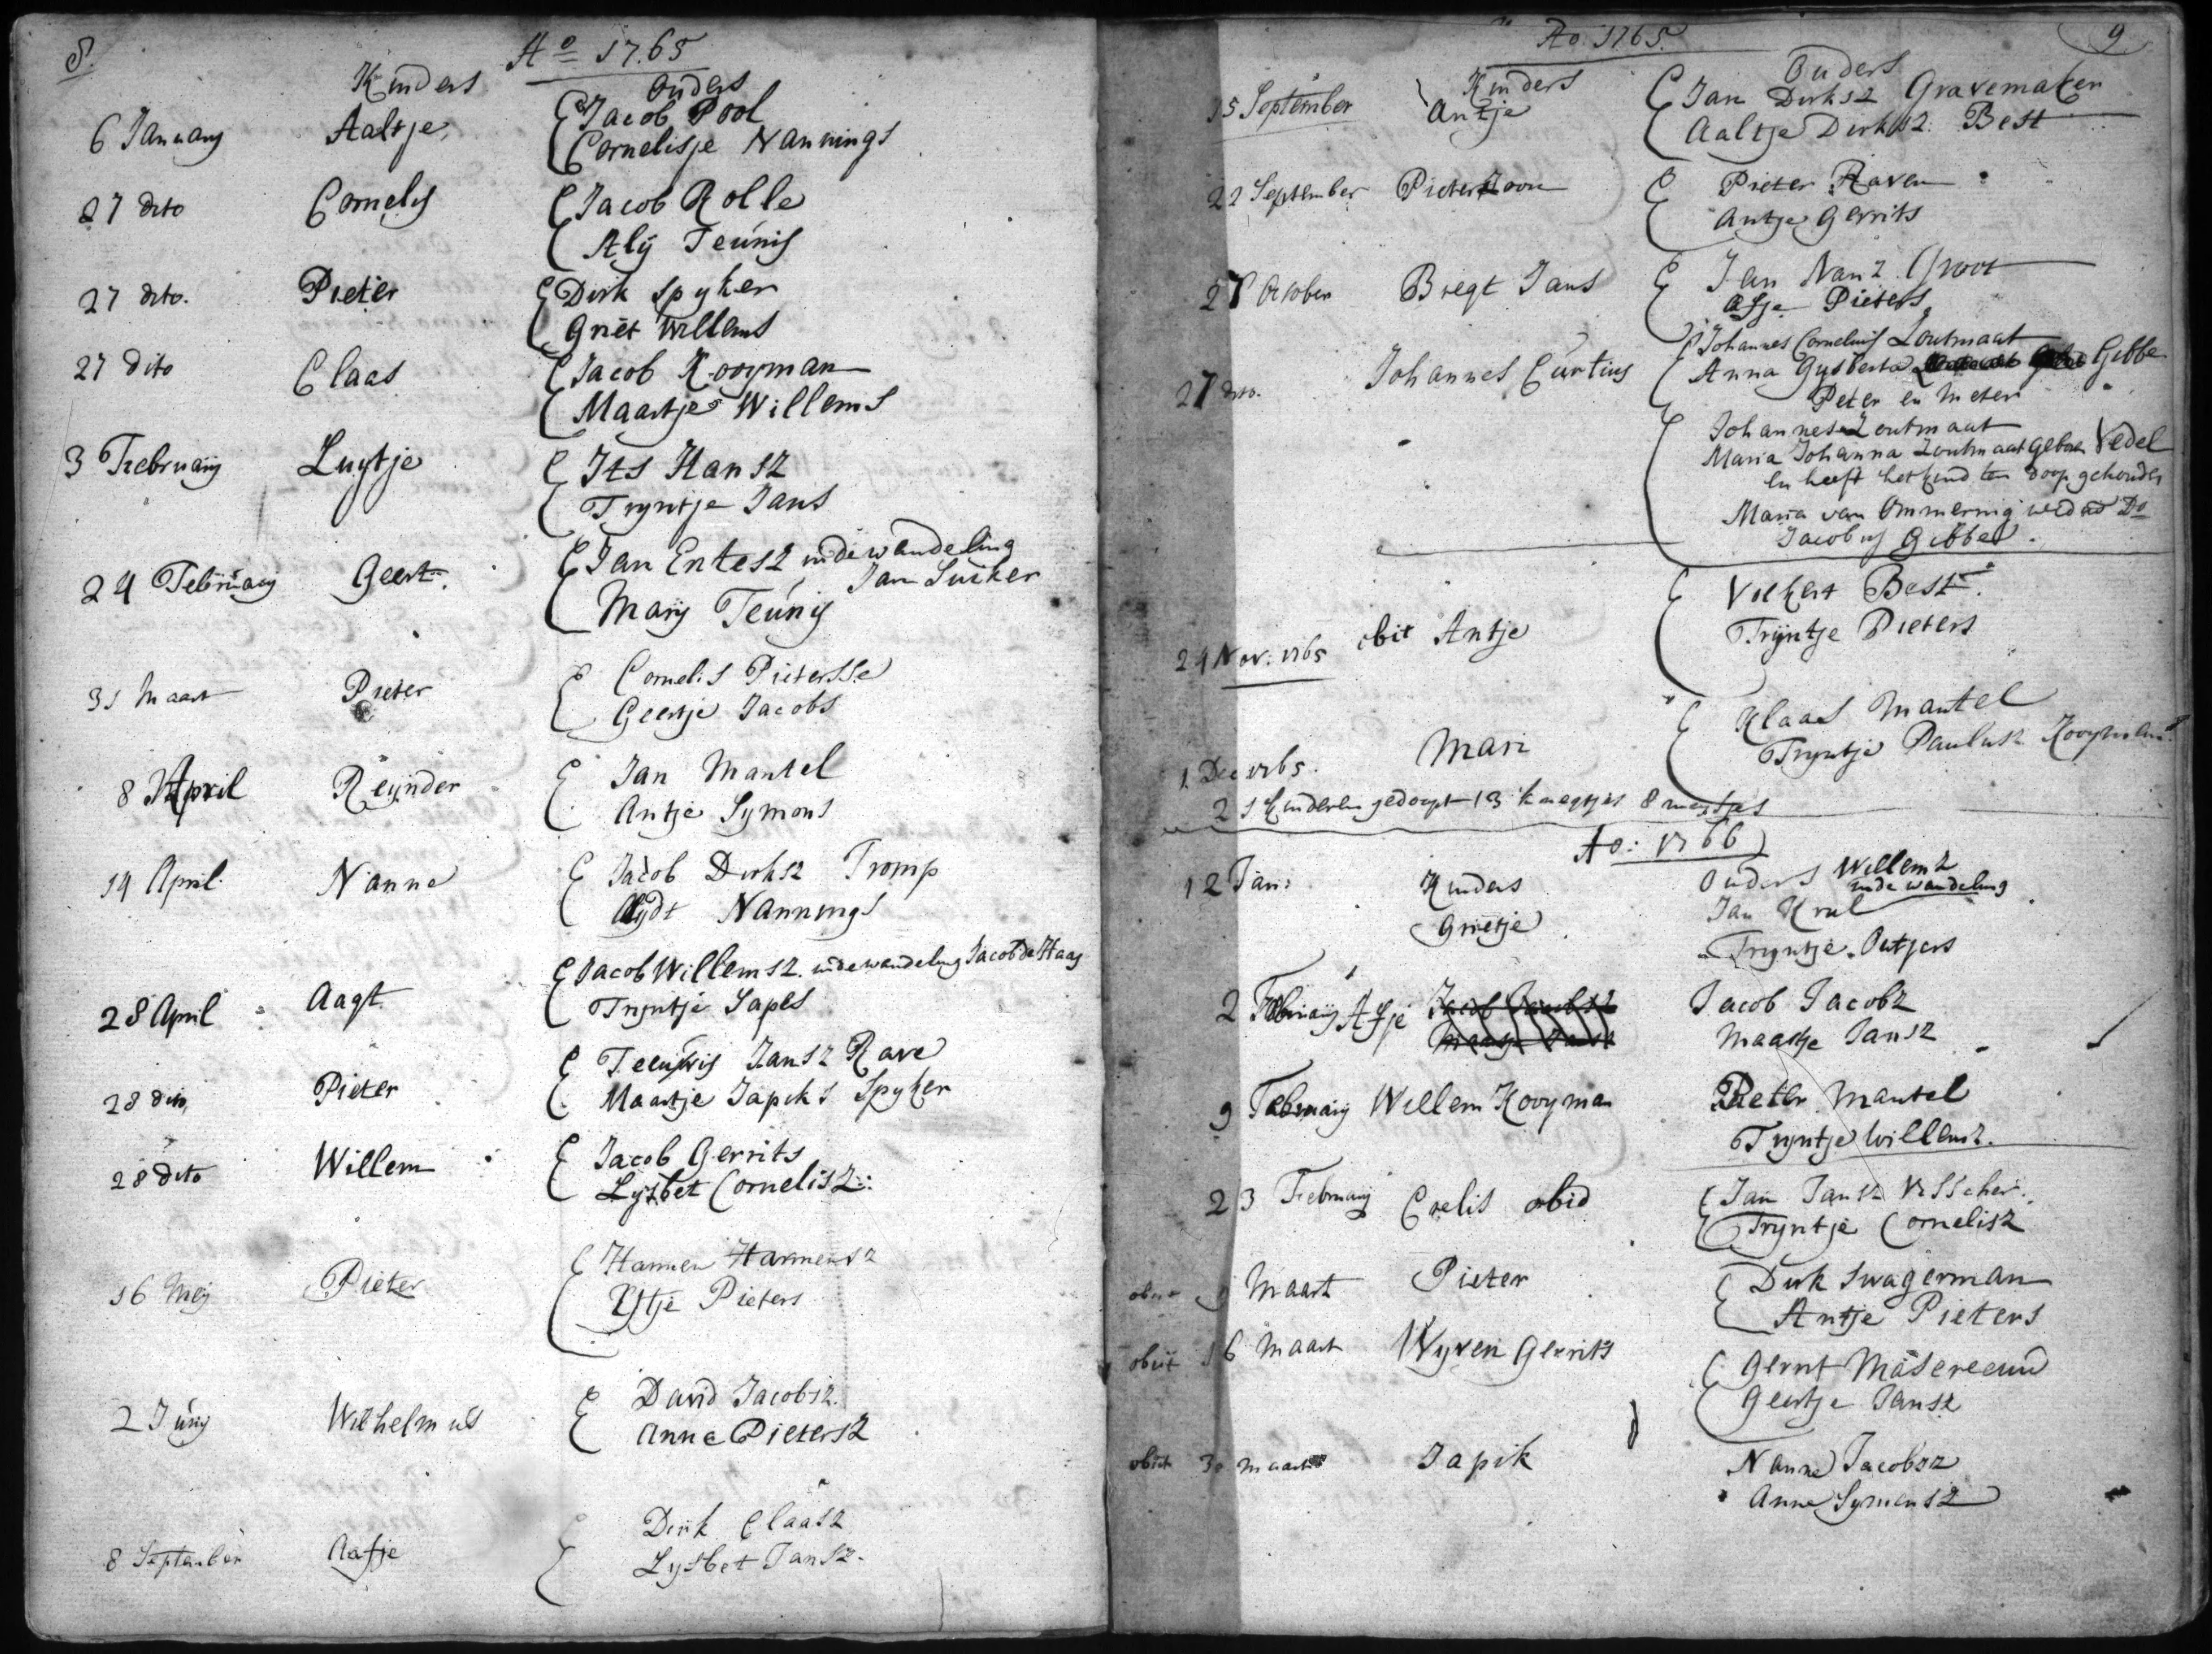 8.
Ao 1765
Kinders Ouders
6 January Aaltje Jacob Pool
Cornelisje Nannings
27 dito Cornelis Jacob Rolle
Alÿ Teunis
27 dito. Pieter Dirk Spyker
Griet Willems
27 dito Claas Jacob Kooyman
Maartje Willems
3 Februarij Luytje Its Hansz
Tryntje Jans
24 Februarij Geert. Jan Entesz inde wandeling
Jan Suiker
Marij Teunis
31 Maart Pieter Cornelis Pietersse
Geertje Jacobs
8 April Reÿnder Jan Mantel
Antje Symons
14 April. Nanne Jacob Dirksz Tromp
Nannings
28 April Aagt Jacob Willemsz. inde wandeling Jacob de Haas
Tryntje Japks
28 dito Pieter Teeuwis Jansz Rave
Maartje Japiks Spyker
28 dito Willem Jacob Gerrits
Lysbet Cornelisz:
16 Meij Pieter Harmen Harmensz
Ytje Pieters
2 Junij Wilhelmus David Jacobsz.
Anna Pietersz
8 September Aafje Dirk Claasz
Lysbet Jansz.
Ao. 1765. 9
Kinders Ouders
15 September Antje Jan Dirksz Gravemaker
Aaltje Dirksz. Best
22 September Pieter Zoon Pieter Raven
Antje Gerrits
27 October Bregt Jans Jan Nanz. Groot
Afje Pieters
27 dito. Johannes Curtius Johannes Cornelius Zoutmaat
Anna Gysberta Gibbe
Peter en Meter
Johannes Zoutmaat
Maria Johanna Zoutmaat Gebor. Vedel
en heeft het kind ten doop gehouden
Maria van Ommering wed. Do
Jacobus Gibbe.
24 Nov: 1765 obit Antje Volkert Best.
Trÿntje Pieters
1 Dec 1765. Mari Klaas Mantel
Tryntje Paulusz Kooymans
21 kinderen gedoopt 13 knegtjes 8 meysjes
Ao: 1766
12 Jan: Kinders Ouders Willemz
inde wandeling
Grietje Jan Krul
Tryntje Outjers
2 Februarij Afje Jacob Jacobz
Maartje Jansz
9 Februarij Willem Kooyman Pieter Mantel
Tryntje Willemz.
23 Februarij Crelis obid Jan Jansz Visscher.
Tryntje Cornelisz
9 Maart Pieter Dirk Swagerman
Antje Pieters
obiit 16 Maart Wyven Gerrits Gerrit Masereeuw
Geertje Jansz
obiit 30 Maart Japik Nanne Jacobsz
Anna Symensz